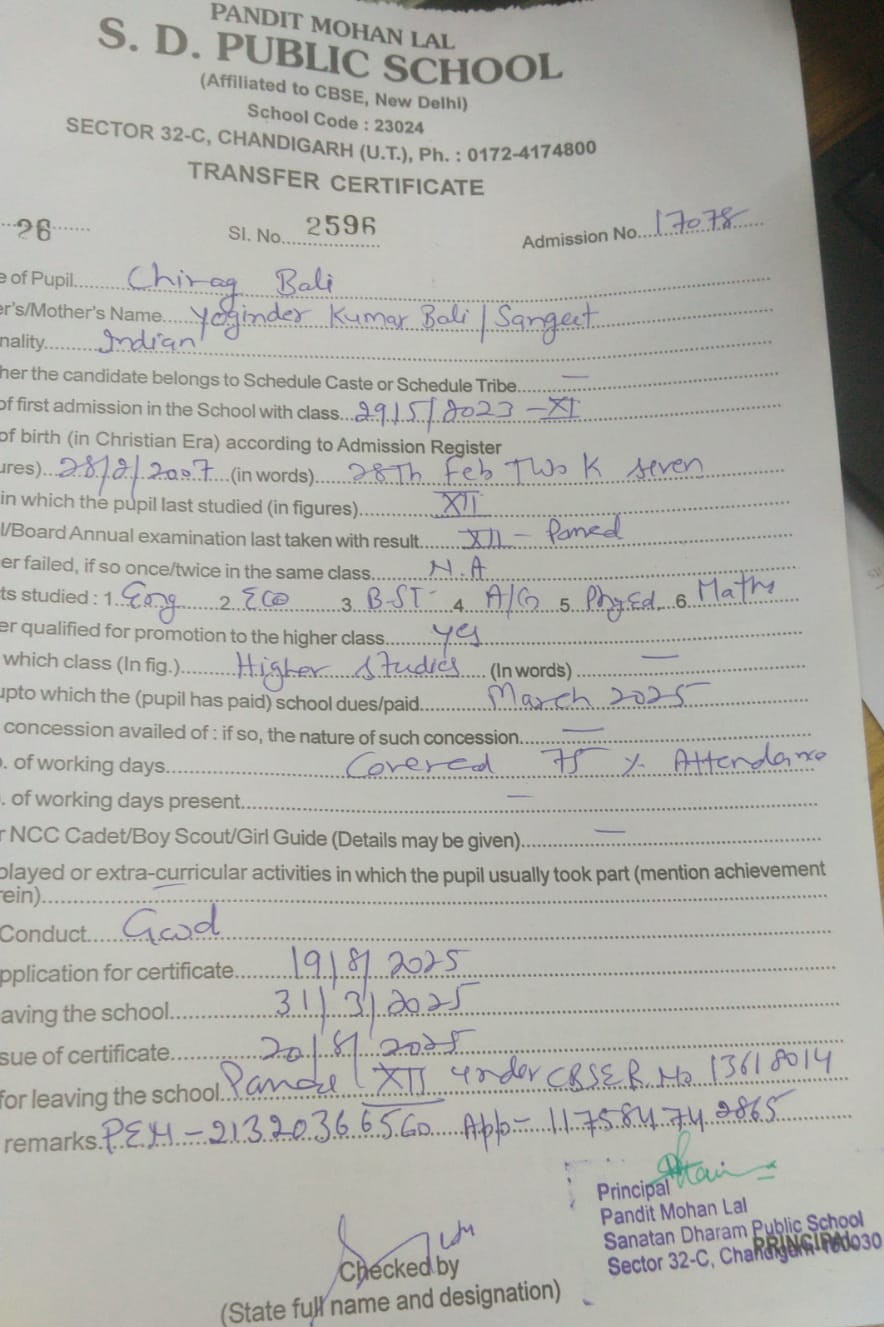 PANDIT MOHAN LAL
S. D. PUBLIC SCHOOL
(Affiliated to CBSE, New Delhi)
School Code : 23024
SECTOR 32-C, CHANDIGARH (U.T.), Ph. : 0172-4174800
TRANSFER CERTIFICATE
26 Sl. No. 2596 Admission No. 17078
e of Pupil Chirag Bali
er's/Mother's Name Yoginder Kumar Bali / Sangeet
nality Indian
her the candidate belongs to Schedule Caste or Schedule Tribe —
of first admission in the School with class 29/5/2023 - XI
of birth (in Christian Era) according to Admission Register
ures) 28/2/2007 (in words) 28Th Feb Two K seven
in which the pupil last studied (in figures) XII
l/Board Annual examination last taken with result XII - Passed
er failed, if so once/twice in the same class N.A
ts studied : 1. Eng 2 ECO 3. B.ST 4 A/C 5 Phy.Ed. 6. Maths
er qualified for promotion to the higher class yes
which class (In fig.) Higher Studies (In words) —
upto which the (pupil has paid) school dues/paid March 2025
concession availed of : if so, the nature of such concession —
. of working days Covered 75 % Attendance
. of working days present —
r NCC Cadet/Boy Scout/Girl Guide (Details may be given) —
played or extra-curricular activities in which the pupil usually took part (mention achievement
rein) —
Conduct Good
pplication for certificate 19/8/2025
aving the school 31/3/2025
sue of certificate 20/8/2025
for leaving the school Passed XII under CBSE R.No 13618014
remarks PEN - 21320366560 App = 117584742865
Principal
Pandit Mohan Lal
Sanatan Dharam Public School
Sector 32-C, Chandigarh-160030
PRINCIPAL
Checked by
(State full name and designation)